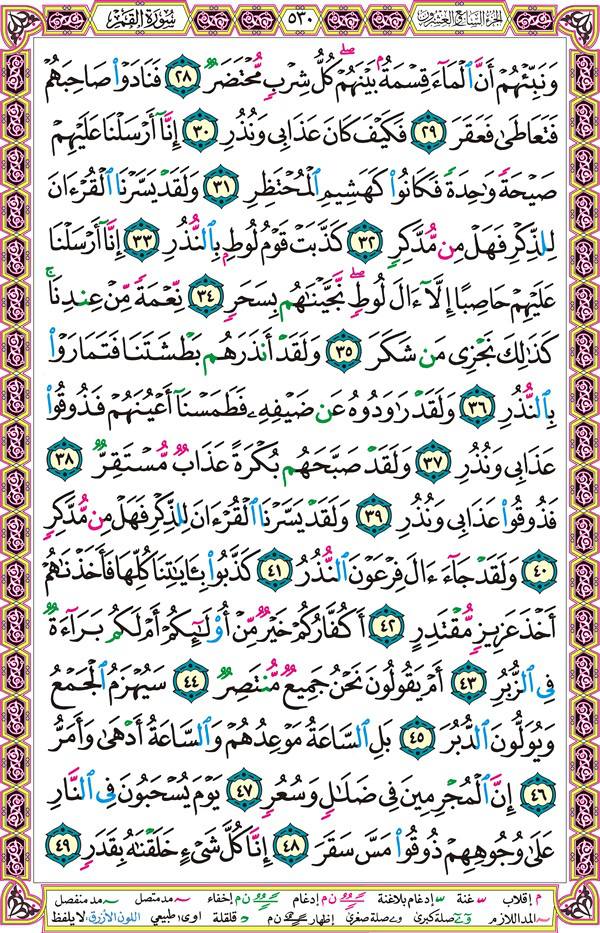 الجزء السابع والعشرون ٥٣٠ سورة القمر
وَنَبِّئْهُمْ أَنَّ ٱلْمَآءَ قِسْمَةٌۢ بَيْنَهُمْ ۖ كُلُّ شِرْبٍ مُّحْتَضَرٌ ٢٨ فَنَادَوْا۟ صَاحِبَهُمْ
فَتَعَاطَىٰ فَعَقَرَ ٢٩ فَكَيْفَ كَانَ عَذَابِى وَنُذُرِ ٣٠ إِنَّآ أَرْسَلْنَا عَلَيْهِمْ
صَيْحَةً وَٰحِدَةً فَكَانُوا۟ كَهَشِيمِ ٱلْمُحْتَظِرِ ٣١ وَلَقَدْ يَسَّرْنَا ٱلْقُرْءَانَ
لِلذِّكْرِ فَهَلْ مِن مُّدَّكِرٍ ٣٢ كَذَّبَتْ قَوْمُ لُوطٍۭ بِٱلنُّذُرِ ٣٣ إِنَّآ أَرْسَلْنَا
عَلَيْهِمْ حَاصِبًا إِلَّآ ءَالَ لُوطٍ ۖ نَّجَّيْنَٰهُم بِسَحَرٍ ٣٤ نِّعْمَةً مِّنْ عِندِنَا ۚ
كَذَٰلِكَ نَجْزِى مَن شَكَرَ ٣٥ وَلَقَدْ أَنذَرَهُم بَطْشَتَنَا فَتَمَارَوْا۟
بِٱلنُّذُرِ ٣٦ وَلَقَدْ رَٰوَدُوهُ عَن ضَيْفِهِۦ فَطَمَسْنَآ أَعْيُنَهُمْ فَذُوقُوا۟
عَذَابِى وَنُذُرِ ٣٧ وَلَقَدْ صَبَّحَهُم بُكْرَةً عَذَابٌ مُّسْتَقِرٌّ ٣٨
فَذُوقُوا۟ عَذَابِى وَنُذُرِ ٣٩ وَلَقَدْ يَسَّرْنَا ٱلْقُرْءَانَ لِلذِّكْرِ فَهَلْ مِن مُّدَّكِرٍ
٤٠ وَلَقَدْ جَآءَ ءَالَ فِرْعَوْنَ ٱلنُّذُرُ ٤١ كَذَّبُوا۟ بِـَٔايَٰتِنَا كُلِّهَا فَأَخَذْنَٰهُمْ
أَخْذَ عَزِيزٍ مُّقْتَدِرٍ ٤٢ أَكُفَّارُكُمْ خَيْرٌ مِّنْ أُو۟لَٰٓئِكُمْ أَمْ لَكُم بَرَآءَةٌ
فِى ٱلزُّبُرِ ٤٣ أَمْ يَقُولُونَ نَحْنُ جَمِيعٌ مُّنتَصِرٌ ٤٤ سَيُهْزَمُ ٱلْجَمْعُ
وَيُوَلُّونَ ٱلدُّبُرَ ٤٥ بَلِ ٱلسَّاعَةُ مَوْعِدُهُمْ وَٱلسَّاعَةُ أَدْهَىٰ وَأَمَرُّ
٤٦ إِنَّ ٱلْمُجْرِمِينَ فِى ضَلَٰلٍ وَسُعُرٍ ٤٧ يَوْمَ يُسْحَبُونَ فِى ٱلنَّارِ
عَلَىٰ وُجُوهِهِمْ ذُوقُوا۟ مَسَّ سَقَرَ ٤٨ إِنَّا كُلَّ شَىْءٍ خَلَقْنَٰهُ بِقَدَرٍ ٤٩
م إقلاب غنة إدغام بلاغنة ن م إدغام ن م إخفاء مد متصل مد منفصل
المد اللازم صلة كبرى صلة صغرى إظهار ن م قلقلة اوى: طبيعي اللون الأزرق: لا يلفظ